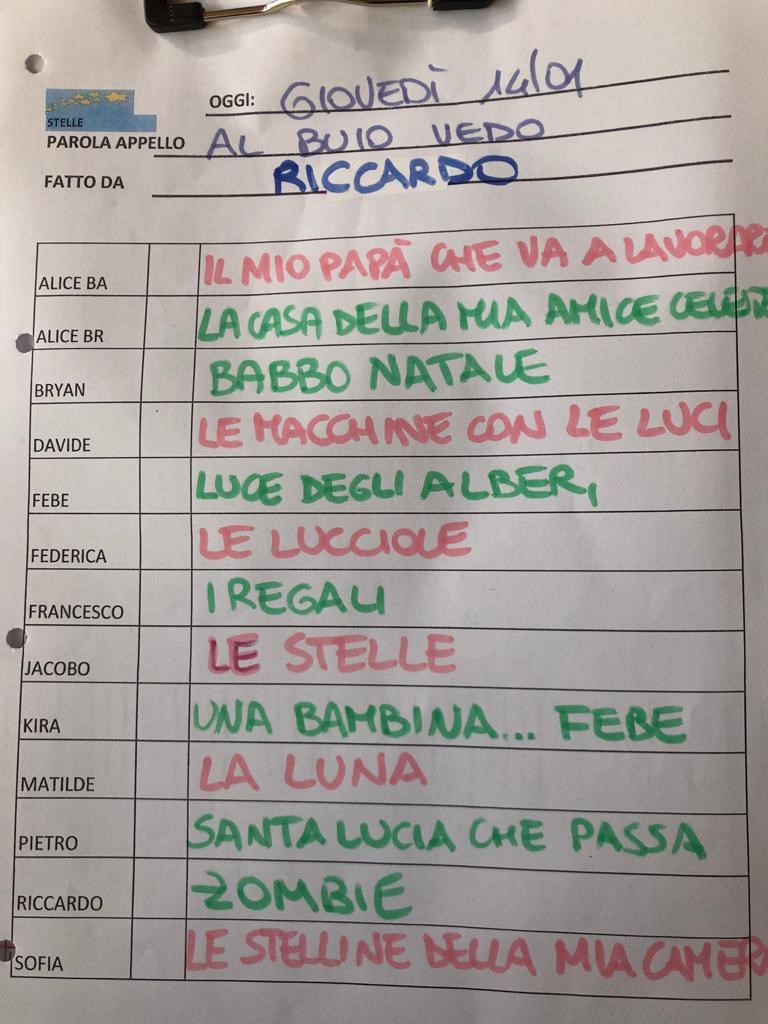 OGGI: GIOVEDÌ 14/01
STELLE
PAROLA APPELLO AL BUIO VEDO
FATTO DA RICCARDO
ALICE BA IL MIO PAPÀ CHE VA A LAVORARE
ALICE BR LA CASA DELLA MIA AMICE
BRYAN BABBO NATALE
DAVIDE LE MACCHINE CON LE LUCI
FEBE LUCE DEGLI ALBERI
FEDERICA LE LUCCIOLE
FRANCESCO I REGALI
JACOBO LE STELLE
KIRA UNA BAMBINA... FEBE
MATILDE LA LUNA
PIETRO SANTA LUCIA CHE PASSA
RICCARDO ZOMBIE
SOFIA LE STELLINE DELLA MIA CAMERA